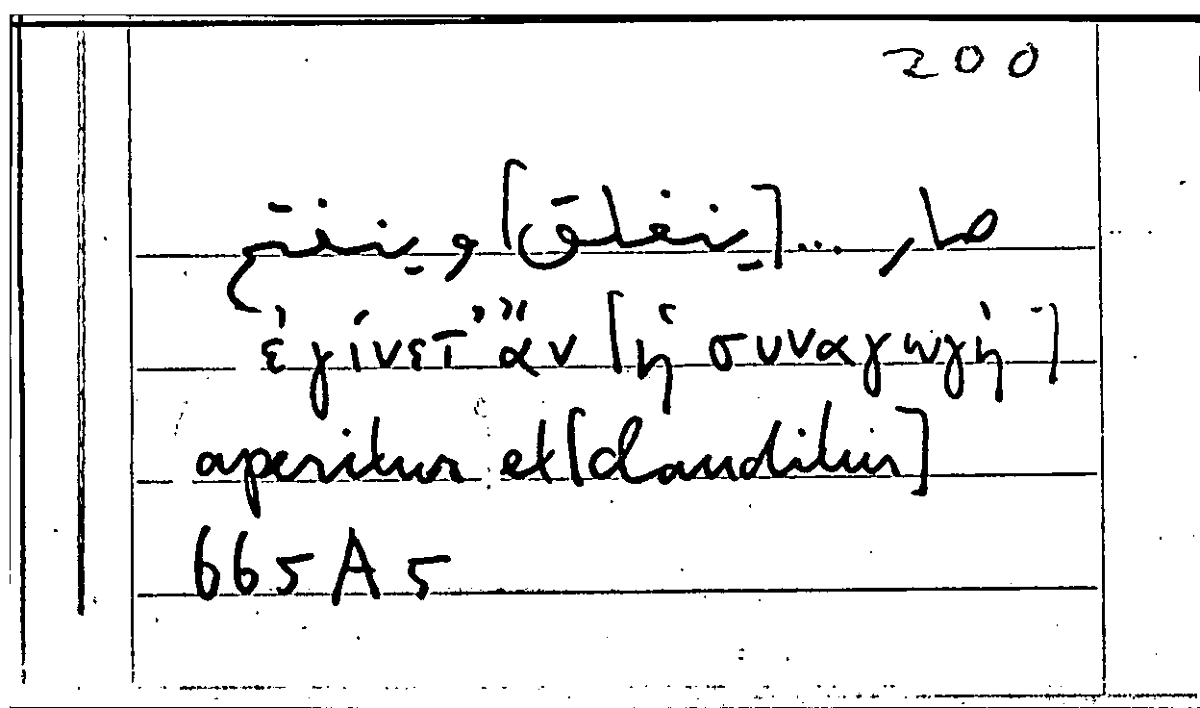 200
صار ... [ينغلق] وينفتح
ἐγίνετ’ ἂν [ἡ συναγωγὴ]
aperitur et [clauditur]
665 A 5